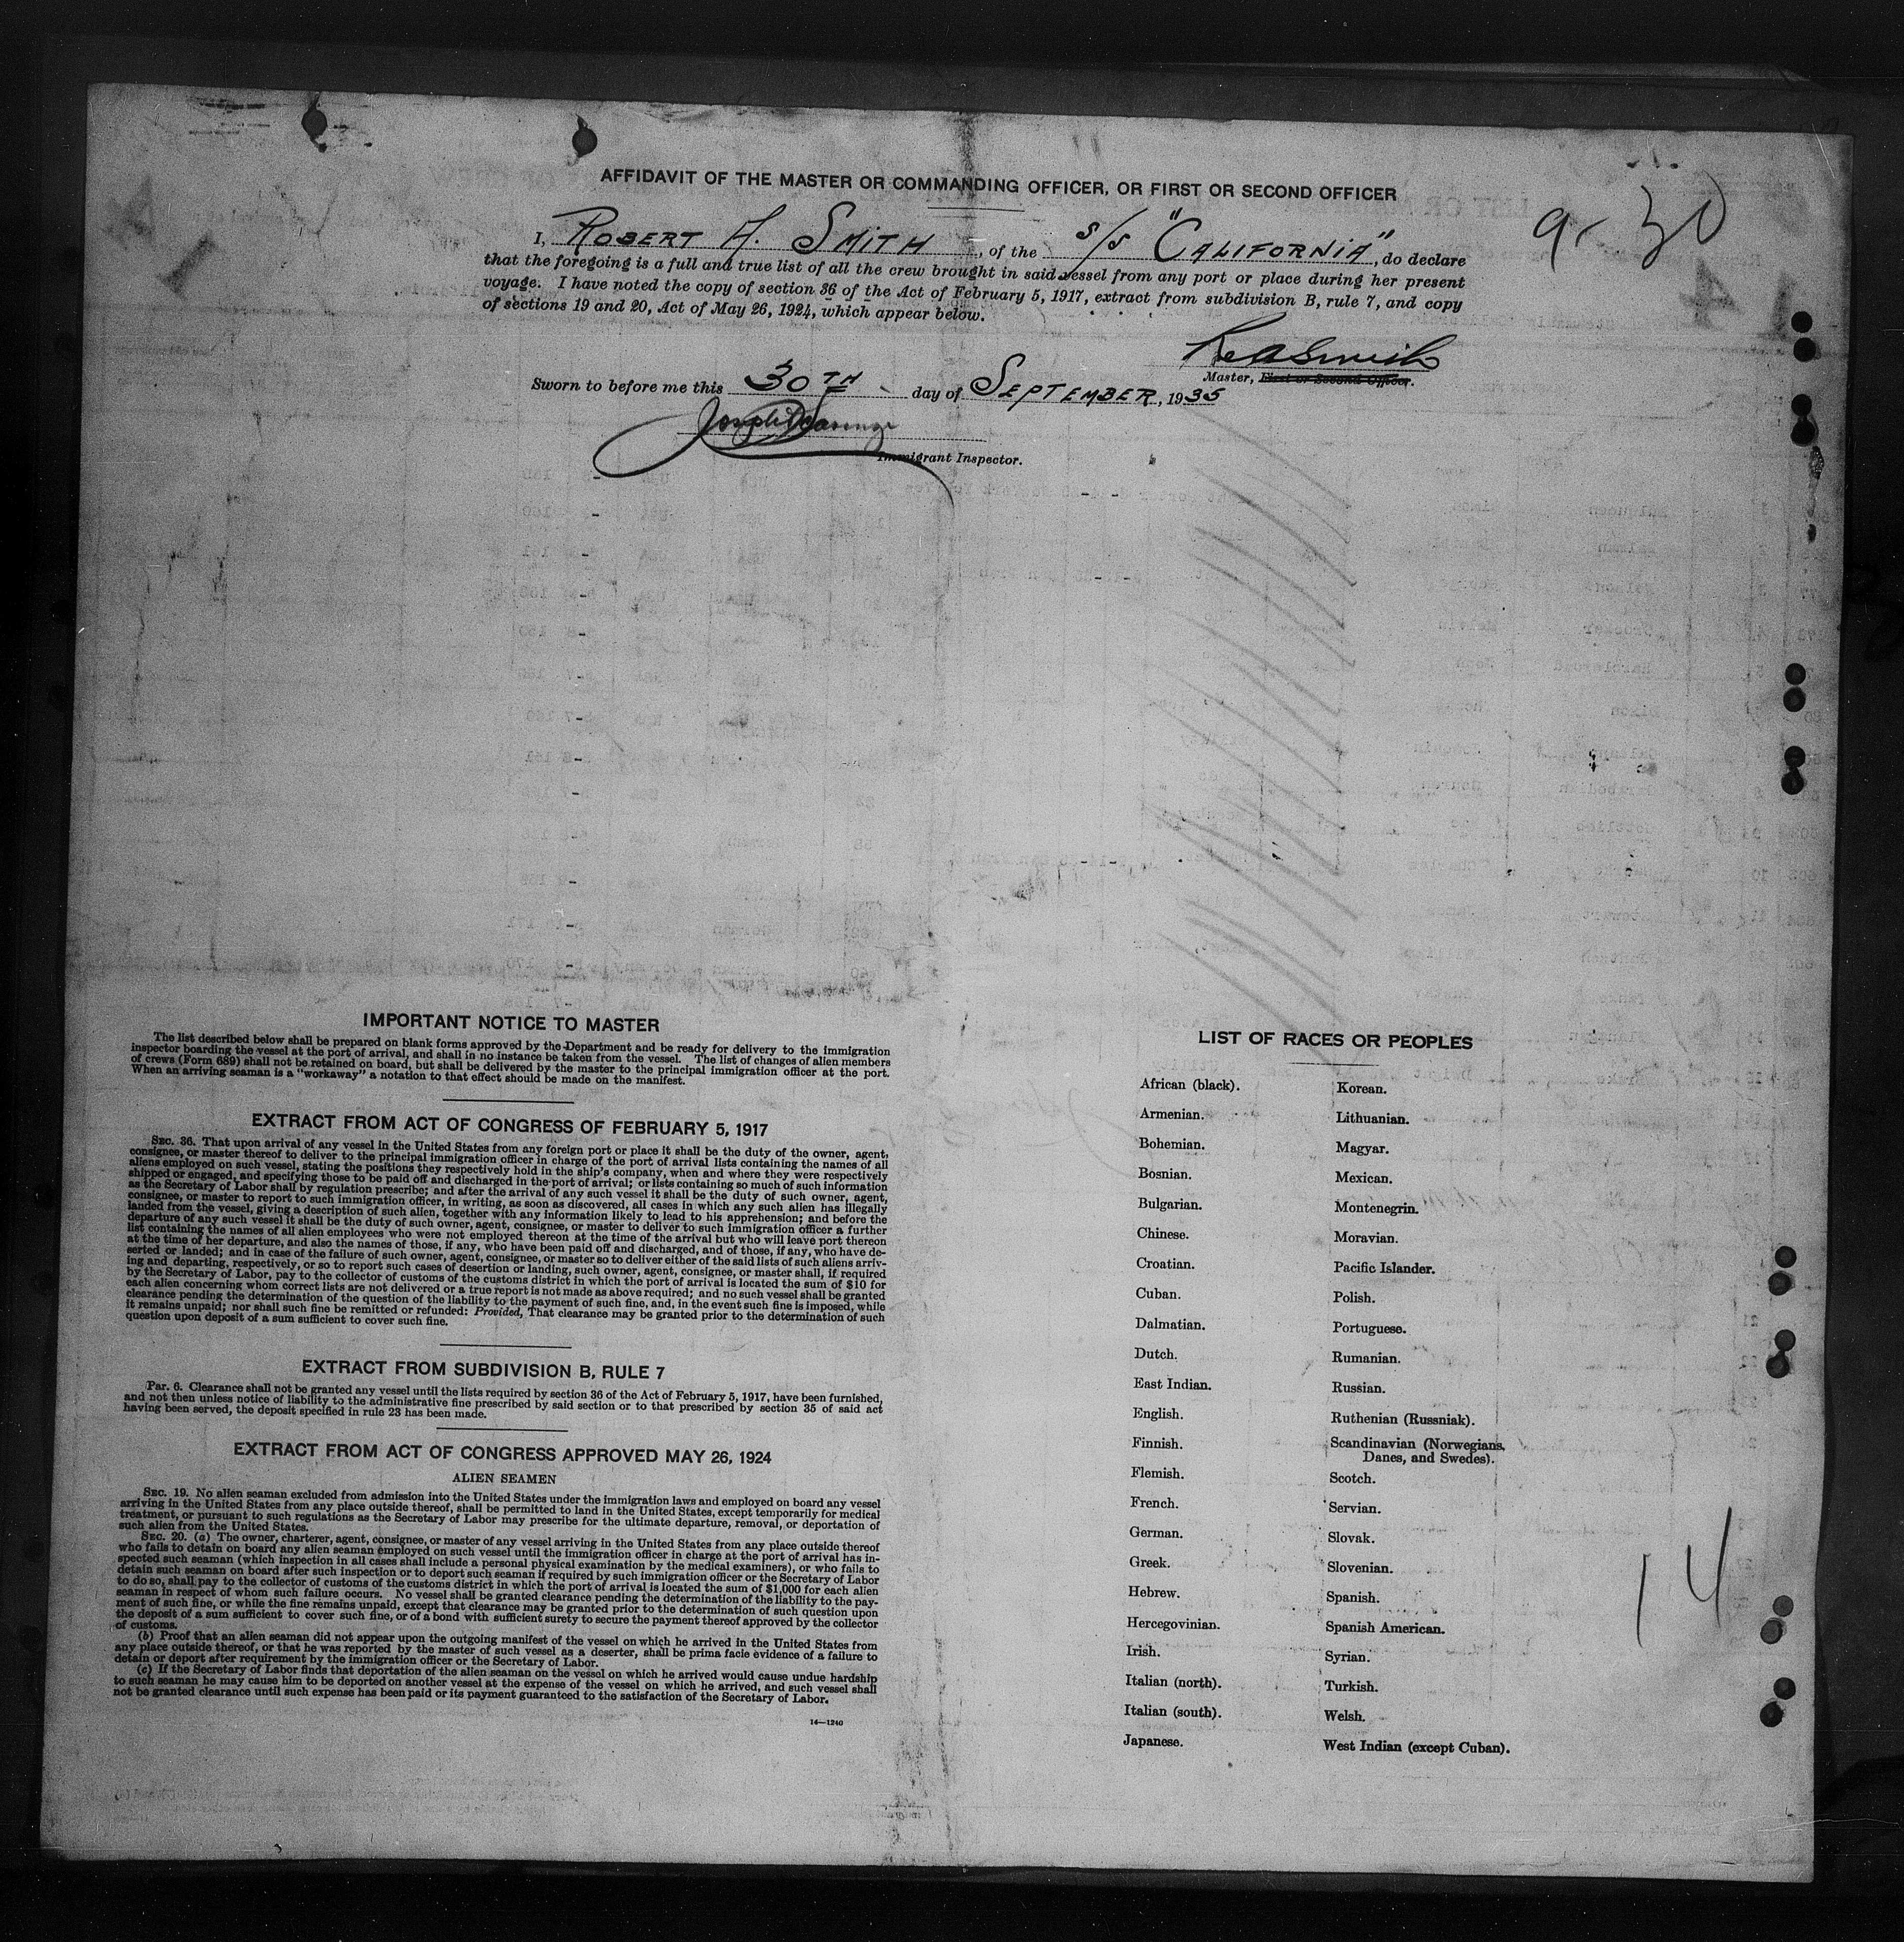 AFFIDAVIT OF THE MASTER OR COMMANDING OFFICER, OR FIRST OR SECOND OFFICER
9-30
I, ROBERT A. SMITH, of the S/S "CALIFORNIA", do declare
that the foregoing is a full and true list of all the crew brought in said vessel from any port or place during her present
voyage. I have noted the copy of section 36 of the Act of February 5, 1917, extract from subdivision B, rule 7, and copy
of sections 19 and 20, Act of May 26, 1924, which appear below.
R A Smith
Master, First or Second Officer.
Sworn to before me this 30TH day of SEPTEMBER, 1935
Joseph
Immigrant Inspector.
IMPORTANT NOTICE TO MASTER
The list described below shall be prepared on blank forms approved by the Department and be ready for delivery to the immigration
inspector boarding the vessel at the port of arrival, and shall in no instance be taken from the vessel. The list of changes of alien members
of crews (Form 689) shall not be retained on board, but shall be delivered by the master to the principal immigration officer at the port.
When an arriving seaman is a "workaway" a notation to that effect should be made on the manifest.
EXTRACT FROM ACT OF CONGRESS OF FEBRUARY 5, 1917
SEC. 36. That upon arrival of any vessel in the United States from any foreign port or place it shall be the duty of the owner, agent,
consignee, or master thereof to deliver to the principal immigration officer in charge of the port of arrival lists containing the names of all
aliens employed on such vessel, stating the positions they respectively hold in the ship's company, when and where they were respectively
shipped or engaged, and specifying those to be paid off and discharged in the port of arrival; or lists containing so much of such information
as the Secretary of Labor shall by regulation prescribe; and after the arrival of any such vessel it shall be the duty of such owner, agent,
consignee, or master to report to such immigration officer, in writing, as soon as discovered, all cases in which any such alien has illegally
landed from the vessel, giving a description of such alien, together with any information likely to lead to his apprehension; and before the
departure of any such vessel it shall be the duty of such owner, agent, consignee, or master to deliver to such immigration officer a further
list containing the names of all alien employees who were not employed thereon at the time of the arrival but who will leave port thereon
at the time of her departure, and also the names of those, if any, who have been paid off and discharged, and of those, if any, who have de-
serted or landed; and in case of the failure of such owner, agent, consignee, or master so to deliver either of the said lists of such aliens arriv-
ing and departing, respectively, or so to report such cases of desertion or landing, such owner, agent, consignee, or master, shall, if required
by the Secretary of Labor, pay to the collector of customs of the customs district in which the port of arrival is located the sum of $10 for
each alien concerning whom correct lists are not delivered or a true report is not made as above required; and no such vessel shall be granted
clearance pending the determination of the question of the liability to the payment of such fine, and, in the event such fine is imposed, while
it remains unpaid; nor shall such fine be remitted or refunded: Provided, That clearance may be granted prior to the determination of such
question upon deposit of a sum sufficient to cover such fine.
EXTRACT FROM SUBDIVISION B, RULE 7
Par. 6. Clearance shall not be granted any vessel until the lists required by section 36 of the Act of February 5, 1917, have been furnished,
and not then unless notice of liability to the administrative fine prescribed by said section or to that prescribed by section 35 of said act
having been served, the deposit specified in rule 23 has been made.
EXTRACT FROM ACT OF CONGRESS APPROVED MAY 26, 1924
ALIEN SEAMEN
SEC. 19. No alien seaman excluded from admission into the United States under the immigration laws and employed on board any vessel
arriving in the United States from any place outside thereof, shall be permitted to land in the United States, except temporarily for medical
treatment, or pursuant to such regulations as the Secretary of Labor may prescribe for the ultimate departure, removal, or deportation of
such alien from the United States.
SEC. 20. (a) The owner, charterer, agent, consignee, or master of any vessel arriving in the United States from any place outside thereof
who fails to detain on board any alien seaman employed on such vessel until the immigration officer in charge at the port of arrival has in-
spected such seaman (which inspection in all cases shall include a personal physical examination by the medical examiners), or who fails to
detain such seaman on board after such inspection or to deport such seaman if required by such immigration officer or the Secretary of Labor
to do so, shall pay to the collector of customs of the customs district in which the port of arrival is located the sum of $1,000 for each alien
seaman in respect of whom such failure occurs. No vessel shall be granted clearance pending the determination of the liability to the pay-
ment of such fine, or while the fine remains unpaid, except that clearance may be granted prior to the determination of such question upon
the deposit of a sum sufficient to cover such fine, or of a bond with sufficient surety to secure the payment thereof approved by the collector
of customs.
(b) Proof that an alien seaman did not appear upon the outgoing manifest of the vessel on which he arrived in the United States from
any place outside thereof, or that he was reported by the master of such vessel as a deserter, shall be prima facie evidence of a failure to
detain or deport after requirement by the immigration officer or the Secretary of Labor.
(c) If the Secretary of Labor finds that deportation of the alien seaman on the vessel on which he arrived would cause undue hardship
to such seaman he may cause him to be deported on another vessel at the expense of the vessel on which he arrived, and such vessel shall
not be granted clearance until such expense has been paid or its payment guaranteed to the satisfaction of the Secretary of Labor.
14—1240
LIST OF RACES OR PEOPLES
African (black).
Armenian.
Bohemian.
Bosnian.
Bulgarian.
Chinese.
Croatian.
Cuban.
Dalmatian.
Dutch.
East Indian.
English.
Finnish.
Flemish.
French.
German.
Greek.
Hebrew.
Hercegovinian.
Irish.
Italian (north).
Italian (south).
Japanese.
Korean.
Lithuanian.
Magyar.
Mexican.
Montenegrin.
Moravian.
Pacific Islander.
Polish.
Portuguese.
Rumanian.
Russian.
Ruthenian (Russniak).
Scandinavian (Norwegians,
Danes, and Swedes).
Scotch.
Servian.
Slovak.
Slovenian.
Spanish.
Spanish American.
Syrian.
Turkish.
Welsh.
West Indian (except Cuban).
14